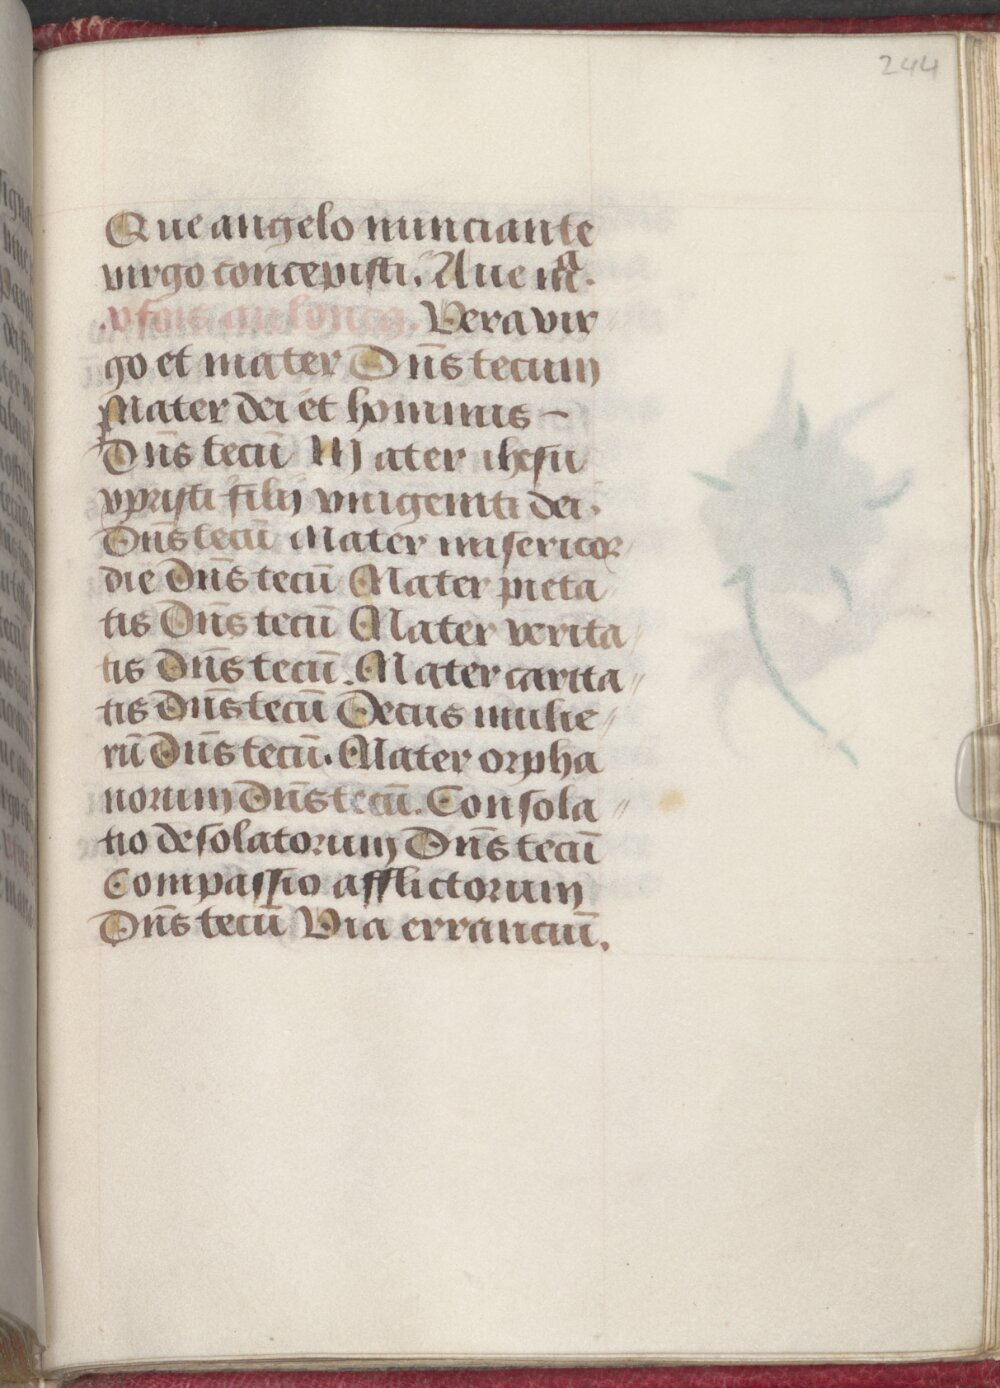 244
Que angelo nunciante
virgo concepisti. Aue mͣ.
Vera vir
go et mater Dn̄s tecum
Mater dei et hominis –
Dn̄s tecū Mater ihesu
xpristi filij vnigeniti dei.
Dn̄s tecū Mater misericor
die Dn̄s tecū Mater pieta
tis Dn̄s tecū Mater verita
tis Dn̄s tecū. Mater carita
tis Dn̄s tecū Decus mulie
rū Dn̄s tecū. Mater orpha
norum Dn̄s tecū. Consola
tio desolatorum Dn̄s tecū
Compassio afflictorum
Dn̄s tecū Via erranciū.